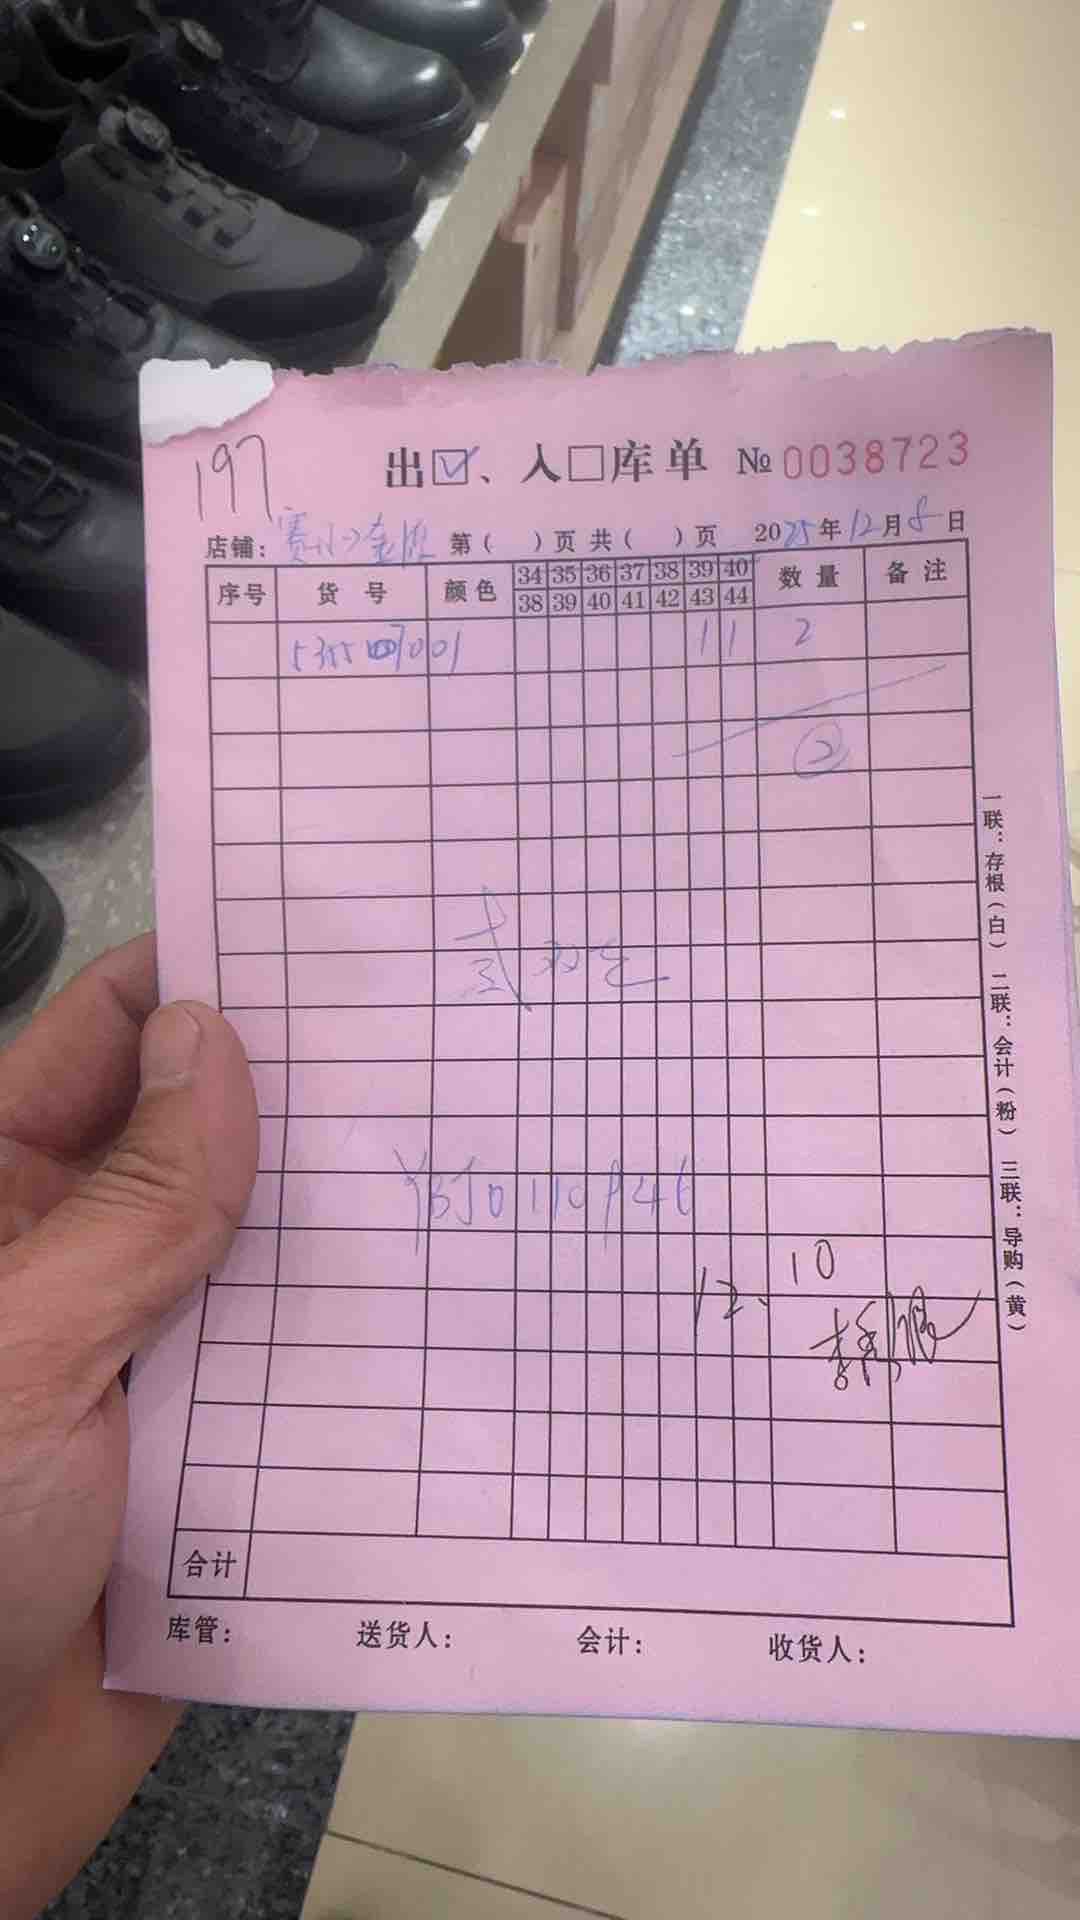 197
出☑、入□库单 № 0038723
店铺: 第( )页 共( )页 2025年12月8日
序号 货号 颜色 34 35 36 37 38 39 40 数量 备注
38 39 40 41 42 43 44
5355 001 1 1 2
②
12.10
合计
库管: 送货人: 会计: 收货人:
一联:存根(白) 二联:会计(粉) 三联:导购(黄)